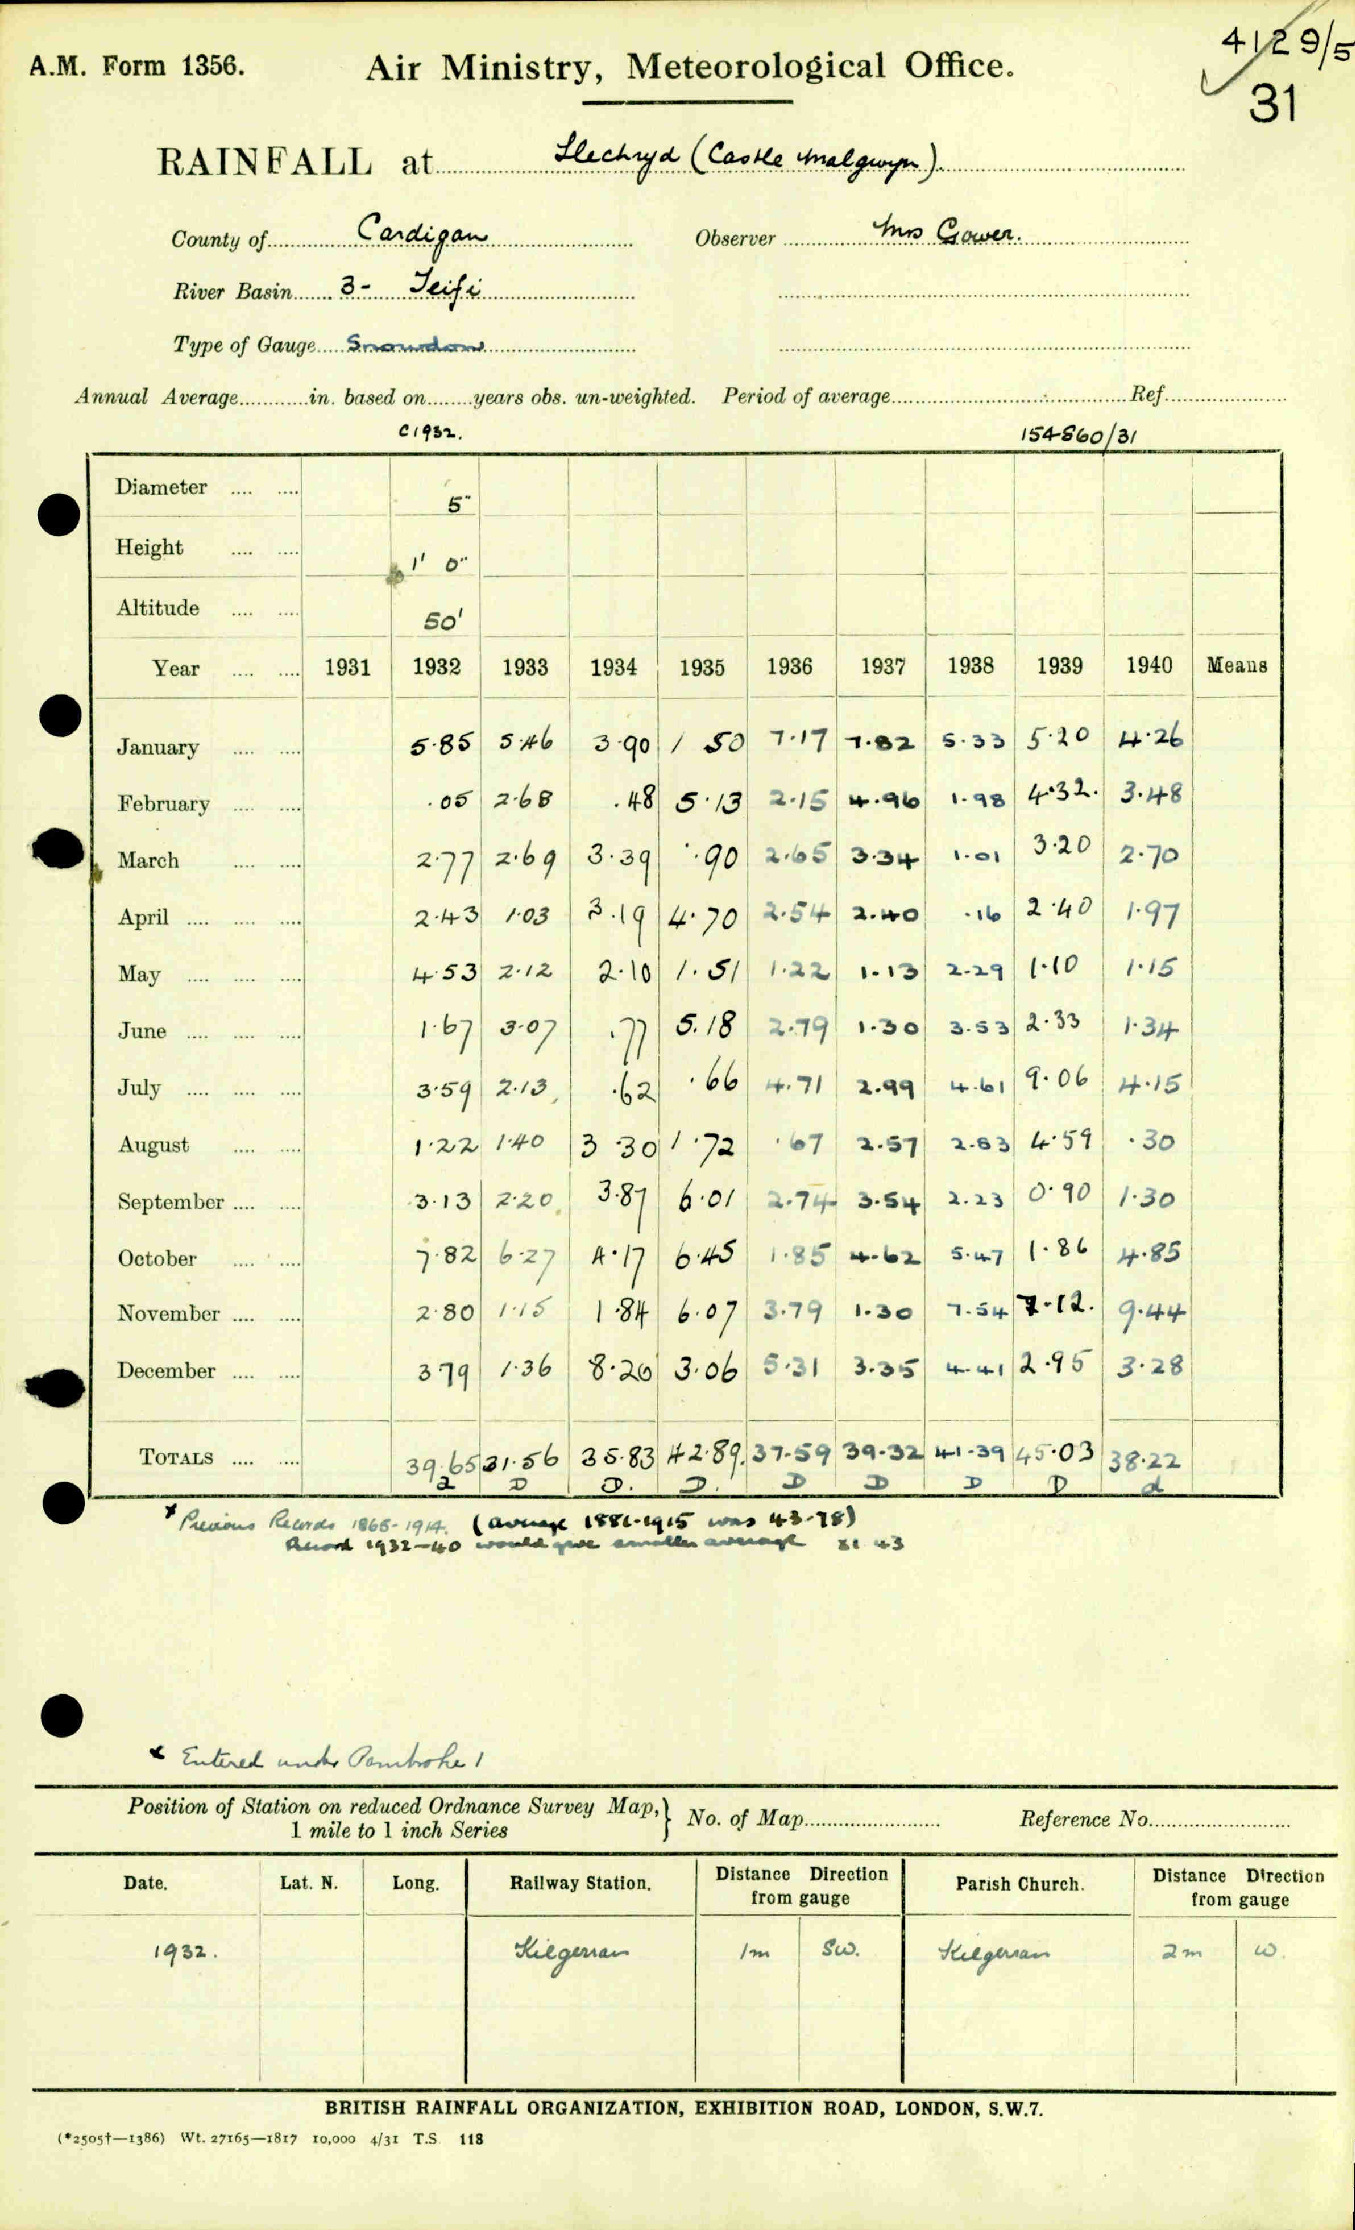 4129/5
A.M. Form 1356. Air Ministry, Meteorological Office.
31
RAINFALL at Llechryd (Castle Malgwyn).
County of Cardigan Observer Mrs Gower.
River Basin 3- Teifi
Type of Gauge Snowdon
Annual Average in. based on years obs. un-weighted. Period of average Ref.
c1932. 154860/31
Diameter 5"
Height 1' 0"
Altitude 50'
Year 1931 1932 1933 1934 1935 1936 1937 1938 1939 1940 Means
January 5.85 5.46 3.90 1 50 7.17 7.82 5.33 5.20 4.26
February .05 2.68 .48 5.13 2.15 4.96 1.98 4.32. 3.48
March 2.77 2.69 3.39 .90 2.65 3.34 1.01 3.20 2.70
April 2.43 1.03 3.19 4.70 2.54 2.40 .16 2.40 1.97
May 4.53 2.12 2.10 1.51 1.22 1.13 2.29 1.10 1.15
June 1.67 3.07 .77 5.18 2.79 1.30 3.53 2.33 1.34
July 3.59 2.13 .62 .66 4.71 2.99 4.61 9.06 4.15
August 1.22 1.40 3.30 1.72 .67 2.57 2.83 4.59 .30
September 3.13 2.20 3.87 6.01 2.74 3.54 2.23 0.90 1.30
October 7.82 6.27 4.17 6.45 1.85 4.62 5.47 1.86 4.85
November 2.80 1.15 1.84 6.07 3.79 1.30 7.54 7.12. 9.44
December 3.79 1.36 8.20 3.06 5.31 3.35 4.41 2.95 3.28
TOTALS 39.65 31.56 35.83 42.89. 37.59 39.32 41.39 45.03 38.22
D D. D. D D D D d
x Previous Records 1865-1914. (average 1881-1915 was 43.78)
Record 1932-40 would give smaller average
x Entered under Pembroke 1
Position of Station on reduced Ordnance Survey Map, 1 mile to 1 inch Series } No. of Map Reference No.
Date. Lat. N. Long. Railway Station. Distance Direction from gauge Parish Church. Distance Direction from gauge
1932. Kilgerran 1m SW. Kilgerran 2m W.
BRITISH RAINFALL ORGANIZATION, EXHIBITION ROAD, LONDON, S.W.7.
(*2505†—1386) Wt. 27165—1817 10,000 4/31 T.S. 118